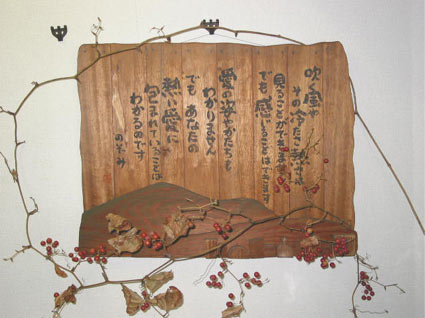 吹く風や
その冷たさ熱さは
見ることができません
でも感じることはできます
愛の姿やかたちも
わかりません
でも あなたの
熱い愛に
包まれていることは
わかるのです
のぞみ